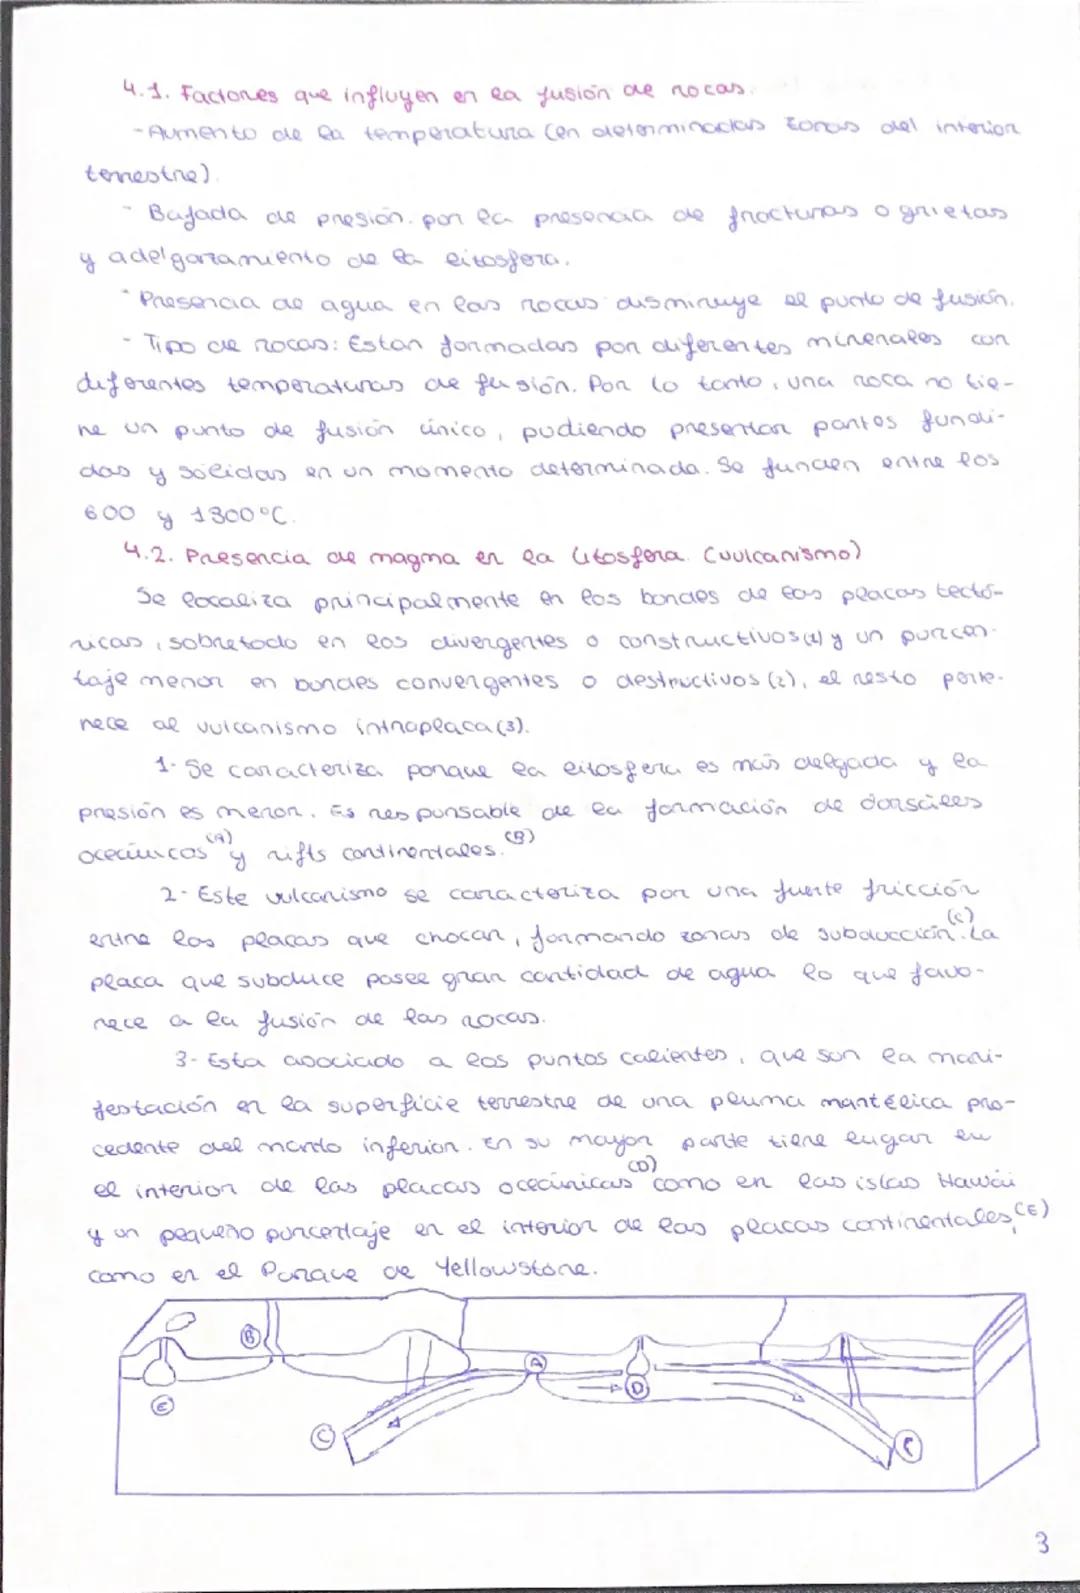 4.1. Factores que influyen en la fusión de rocas.
-Aumento de la temperatura (en determinadas zonas del interior
terrestre).
- Bajada de presión. por la presencia de fracturas o grietas
y adelgazamiento de la litosfera.
- Presencia de agua en las rocas disminuye el punto de fusión.
- Tipo de rocas: Estan formadas por diferentes minerales con
diferentes temperaturas de fusión. Por lo tanto, una roca no tie-
ne un punto de fusión único, pudiendo presentar partes fundi-
das y sólidas en un momento determinado. Se funden entre los
600 y 1300°C.
4.2. Presencia de magma en la litosfera. (vulcanismo)
Se localiza principalmente en los bordes de las placas tectó-
nicas, sobretodo en los divergentes o constructivos(1) y un porcen-
taje menor en bordes convergentes o destructivos (2), el resto perte-
nece al vulcanismo intraplaca(3).
1- Se caracteriza porque la litosfera es más delgada y la
presión es menor. Es responsable de la formación de dorsales
oceánicas (A) y rifts continentales. (B)
2- Este vulcanismo se caracteriza por una fuerte fricción
entre las placas que chocan, formando zonas de subducción (C). La
placa que subduce posee gran cantidad de agua lo que favo-
rece a la fusión de las rocas.
3- Esta asociado a los puntos calientes, que son la mani-
festación en la superficie terrestre de una pluma mantélica pro-
cedente del manto inferior. En su mayor parte tiene lugar en
el interior de las placas oceánicas (D) como en las islas Hawái
y un pequeño porcentaje en el interior de las placas continentales, (E)
como en el Parque de Yellowstone.
B
A
E
D
C
C
3